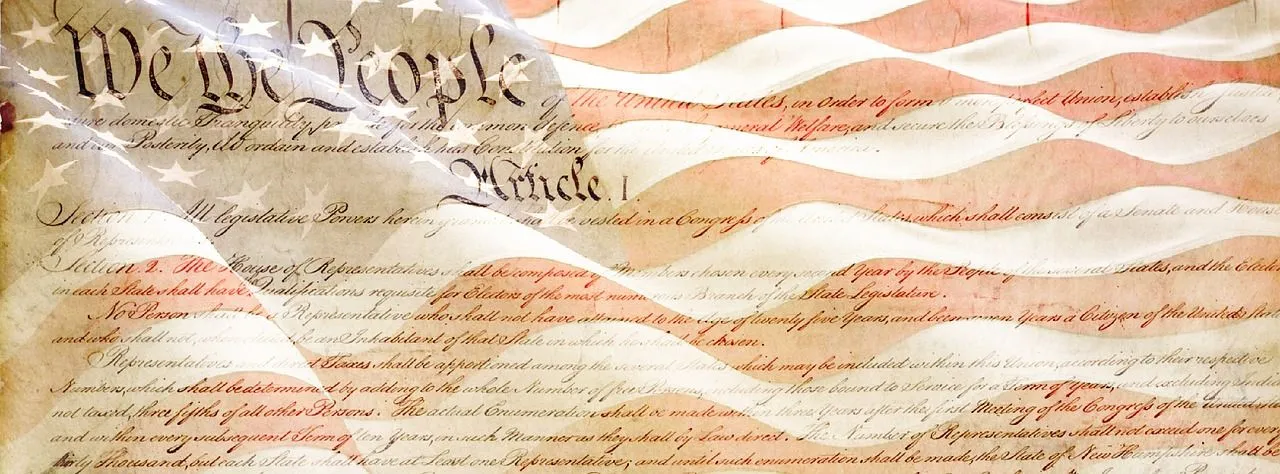 We the People of the United States, in Order to form a more perfect Union, establish Justice
insure domestic Tranquility, provide for the common defence general Welfare, and secure the Blessings of Liberty to ourselves
and our Posterity, do ordain and establish this Constitution for the United States of America.
Article. I.
Section 1. All legislative Powers herein granted shall be vested in a Congress of the United States, which shall consist of a Senate and House
of Representatives.
Section. 2. The House of Representatives shall be composed of Members chosen every second Year by the People of the several States, and the Electors
in each State shall have Qualifications requisite for Electors of the most numerous Branch of the State Legislature.
No Person shall be a Representative who shall not have attained to the Age of twenty five Years, and been seven Years a Citizen of the United States
and who shall not, when elected, be an Inhabitant of that State in which he shall be chosen.
Representatives and direct Taxes shall be apportioned among the several States which may be included within this Union, according to their respective
Numbers, which shall be determined by adding to the whole Number of free Persons, including those bound to Service for a Term of Years, and excluding Indians
not taxed, three fifths of all other Persons. The actual Enumeration shall be made within three Years after the first Meeting of the Congress of the United States
and within every subsequent Term of ten Years, in such Manner as they shall by Law direct. The Number of Representatives shall not exceed one for every
thirty Thousand, but each State shall have at Least one Representative; and until such enumeration shall be made, the State of New Hampshire shall be